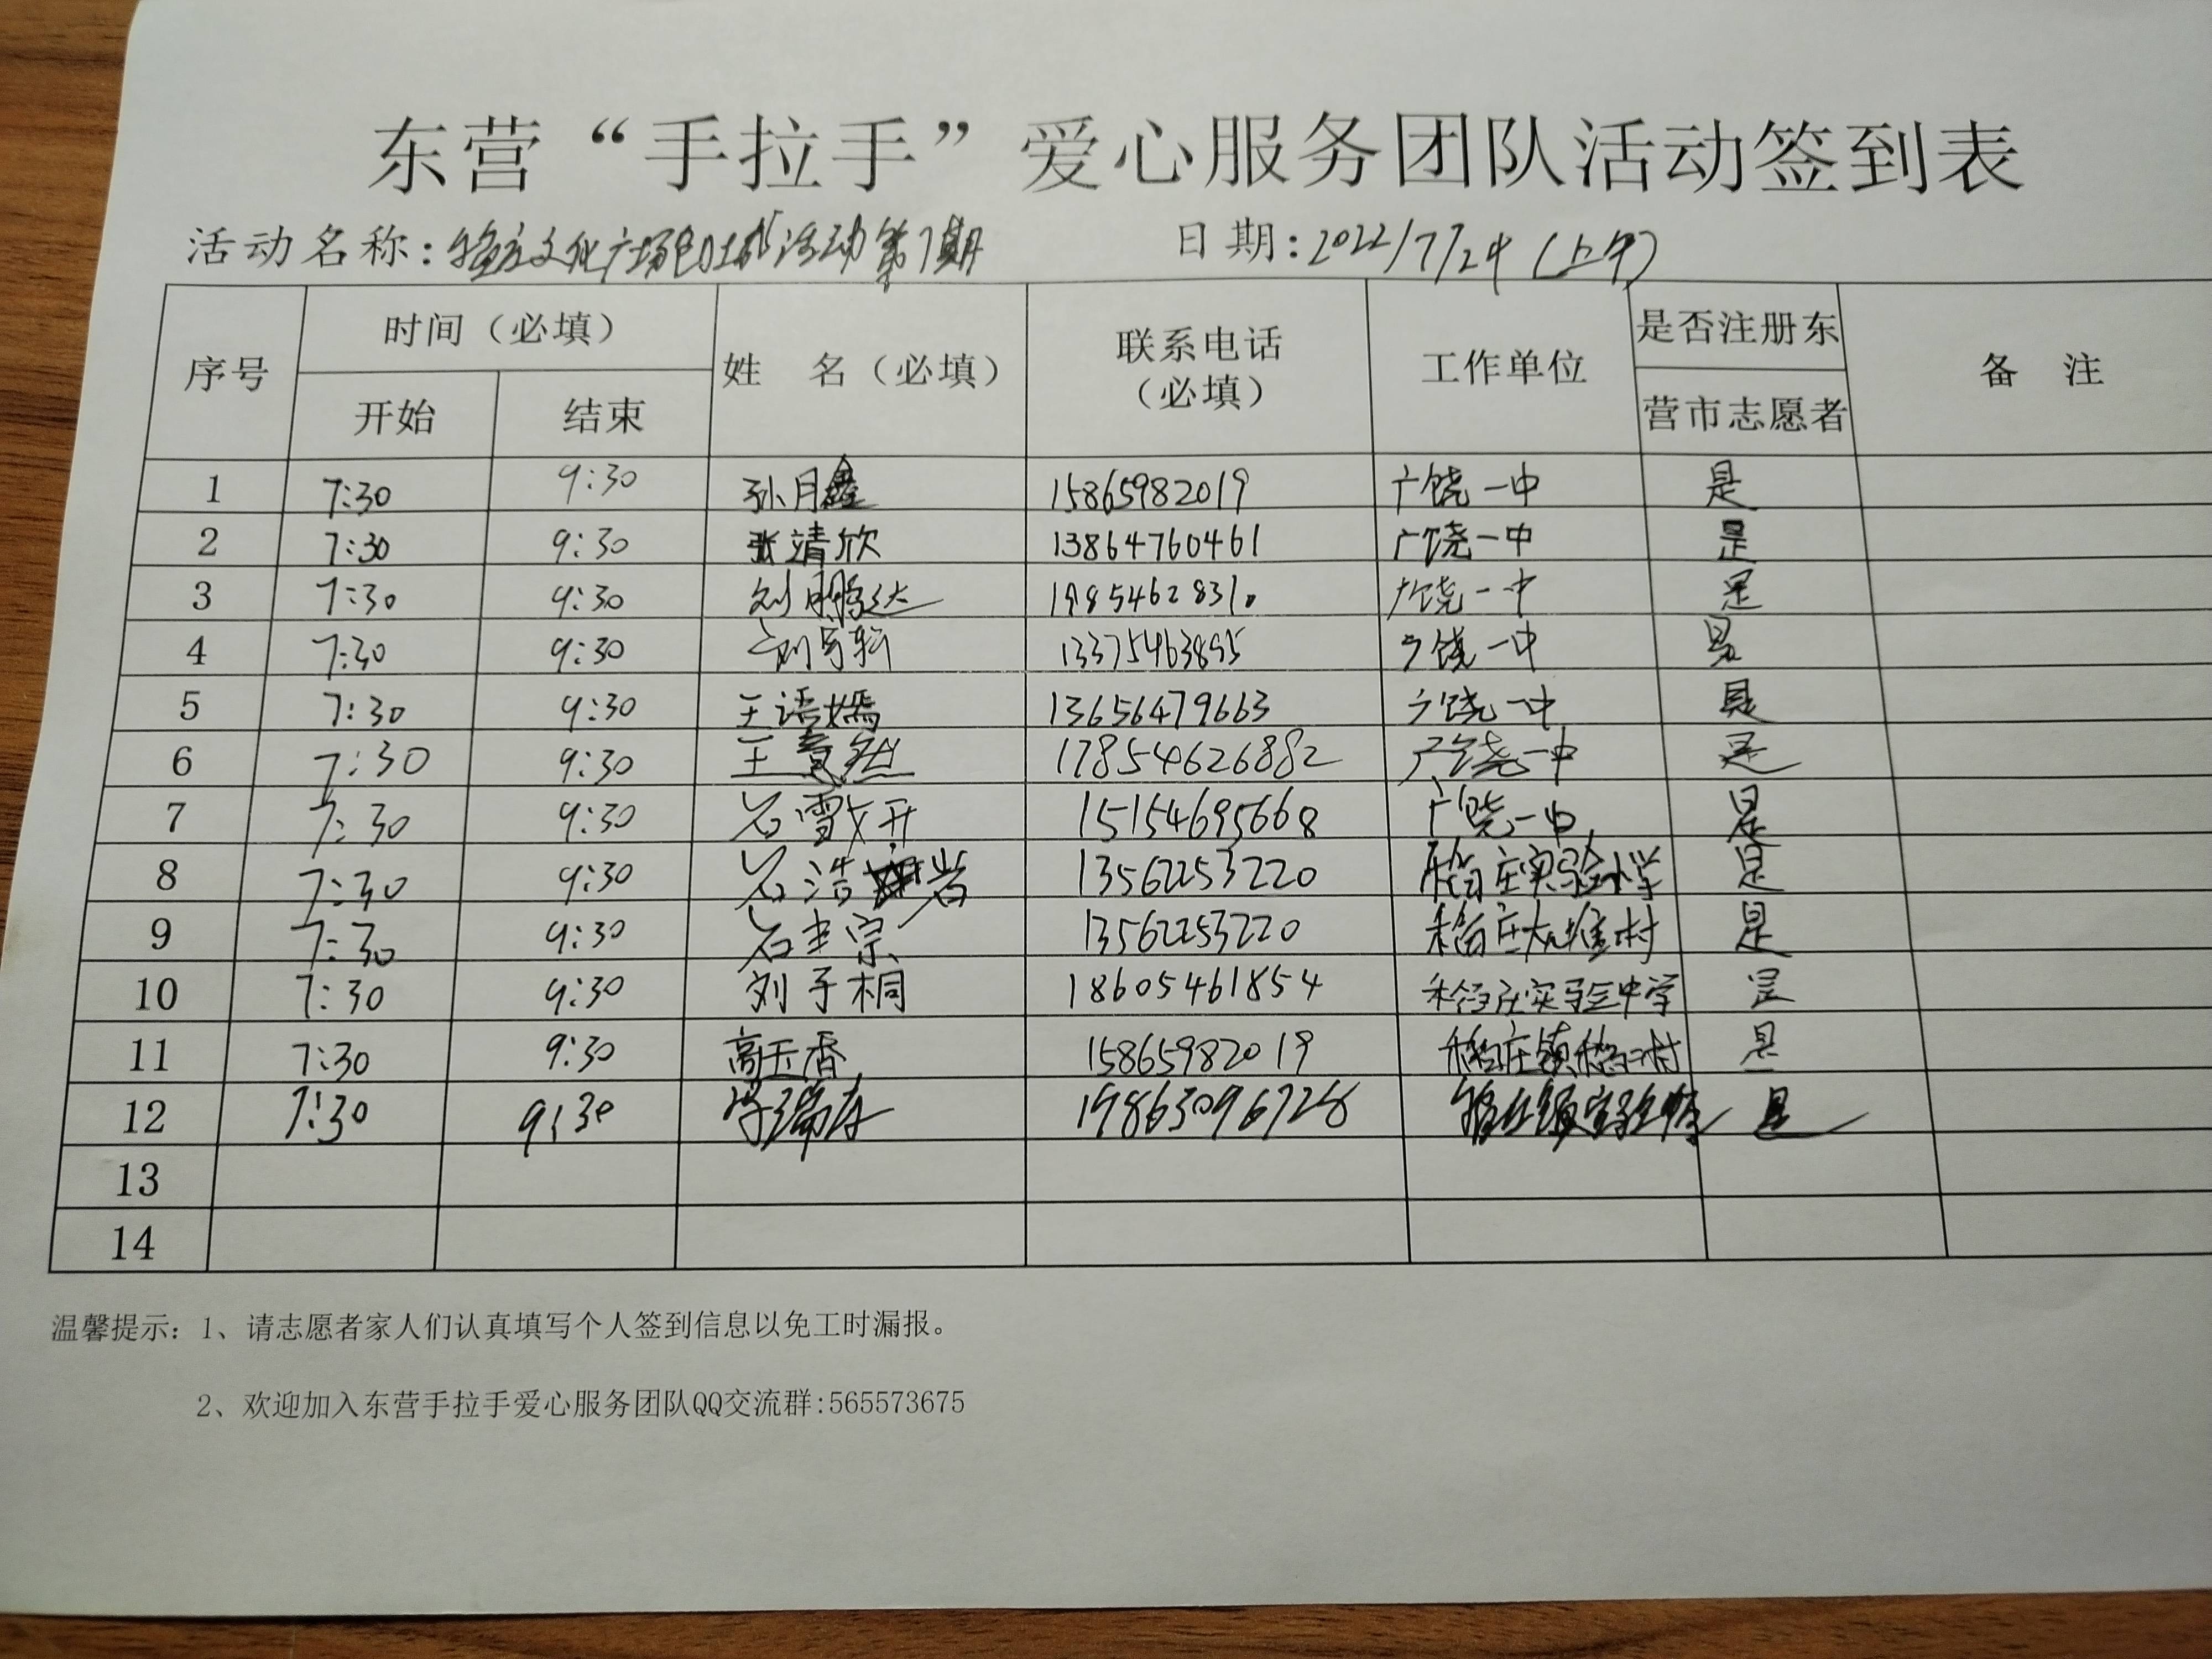 东营“手拉手”爱心服务团队活动签到表
活动名称：稻庄文化广场创城活动第7期 日期：2022/7/24（上午）
序号 时间（必填） 姓 名（必填） 联系电话（必填） 工作单位 是否注册东营市志愿者 备 注
开始 结束
1 7:30 9:30 孙月鑫 15865982019 广饶一中 是
2 7:30 9:30 张靖欣 13864760461 广饶一中 是
3 7:30 9:30 刘鹏达 19854628310 广饶一中 是
4 7:30 9:30 刘宇轩 13375463895 广饶一中 是
5 7:30 9:30 王语嫣 13656479663 广饶一中 是
6 7:30 9:30 王意然 17854626882 广饶一中 是
7 7:30 9:30 石雪妍 15154695668 广饶一中 是
8 7:30 9:30 石浩岩 13562253220 稻庄实验小学 是
9 7:30 9:30 石主宗 13562253220 稻庄大堆村 是
10 7:30 9:30 刘子桐 18605461854 稻庄实验中学 是
11 7:30 9:30 高玉香 15865982019 稻庄镇稻二村 是
12 7:30 9:30 19863096728 是
13
14
温馨提示：1、请志愿者家人们认真填写个人签到信息以免工时漏报。
2、欢迎加入东营手拉手爱心服务团队QQ交流群:565573675